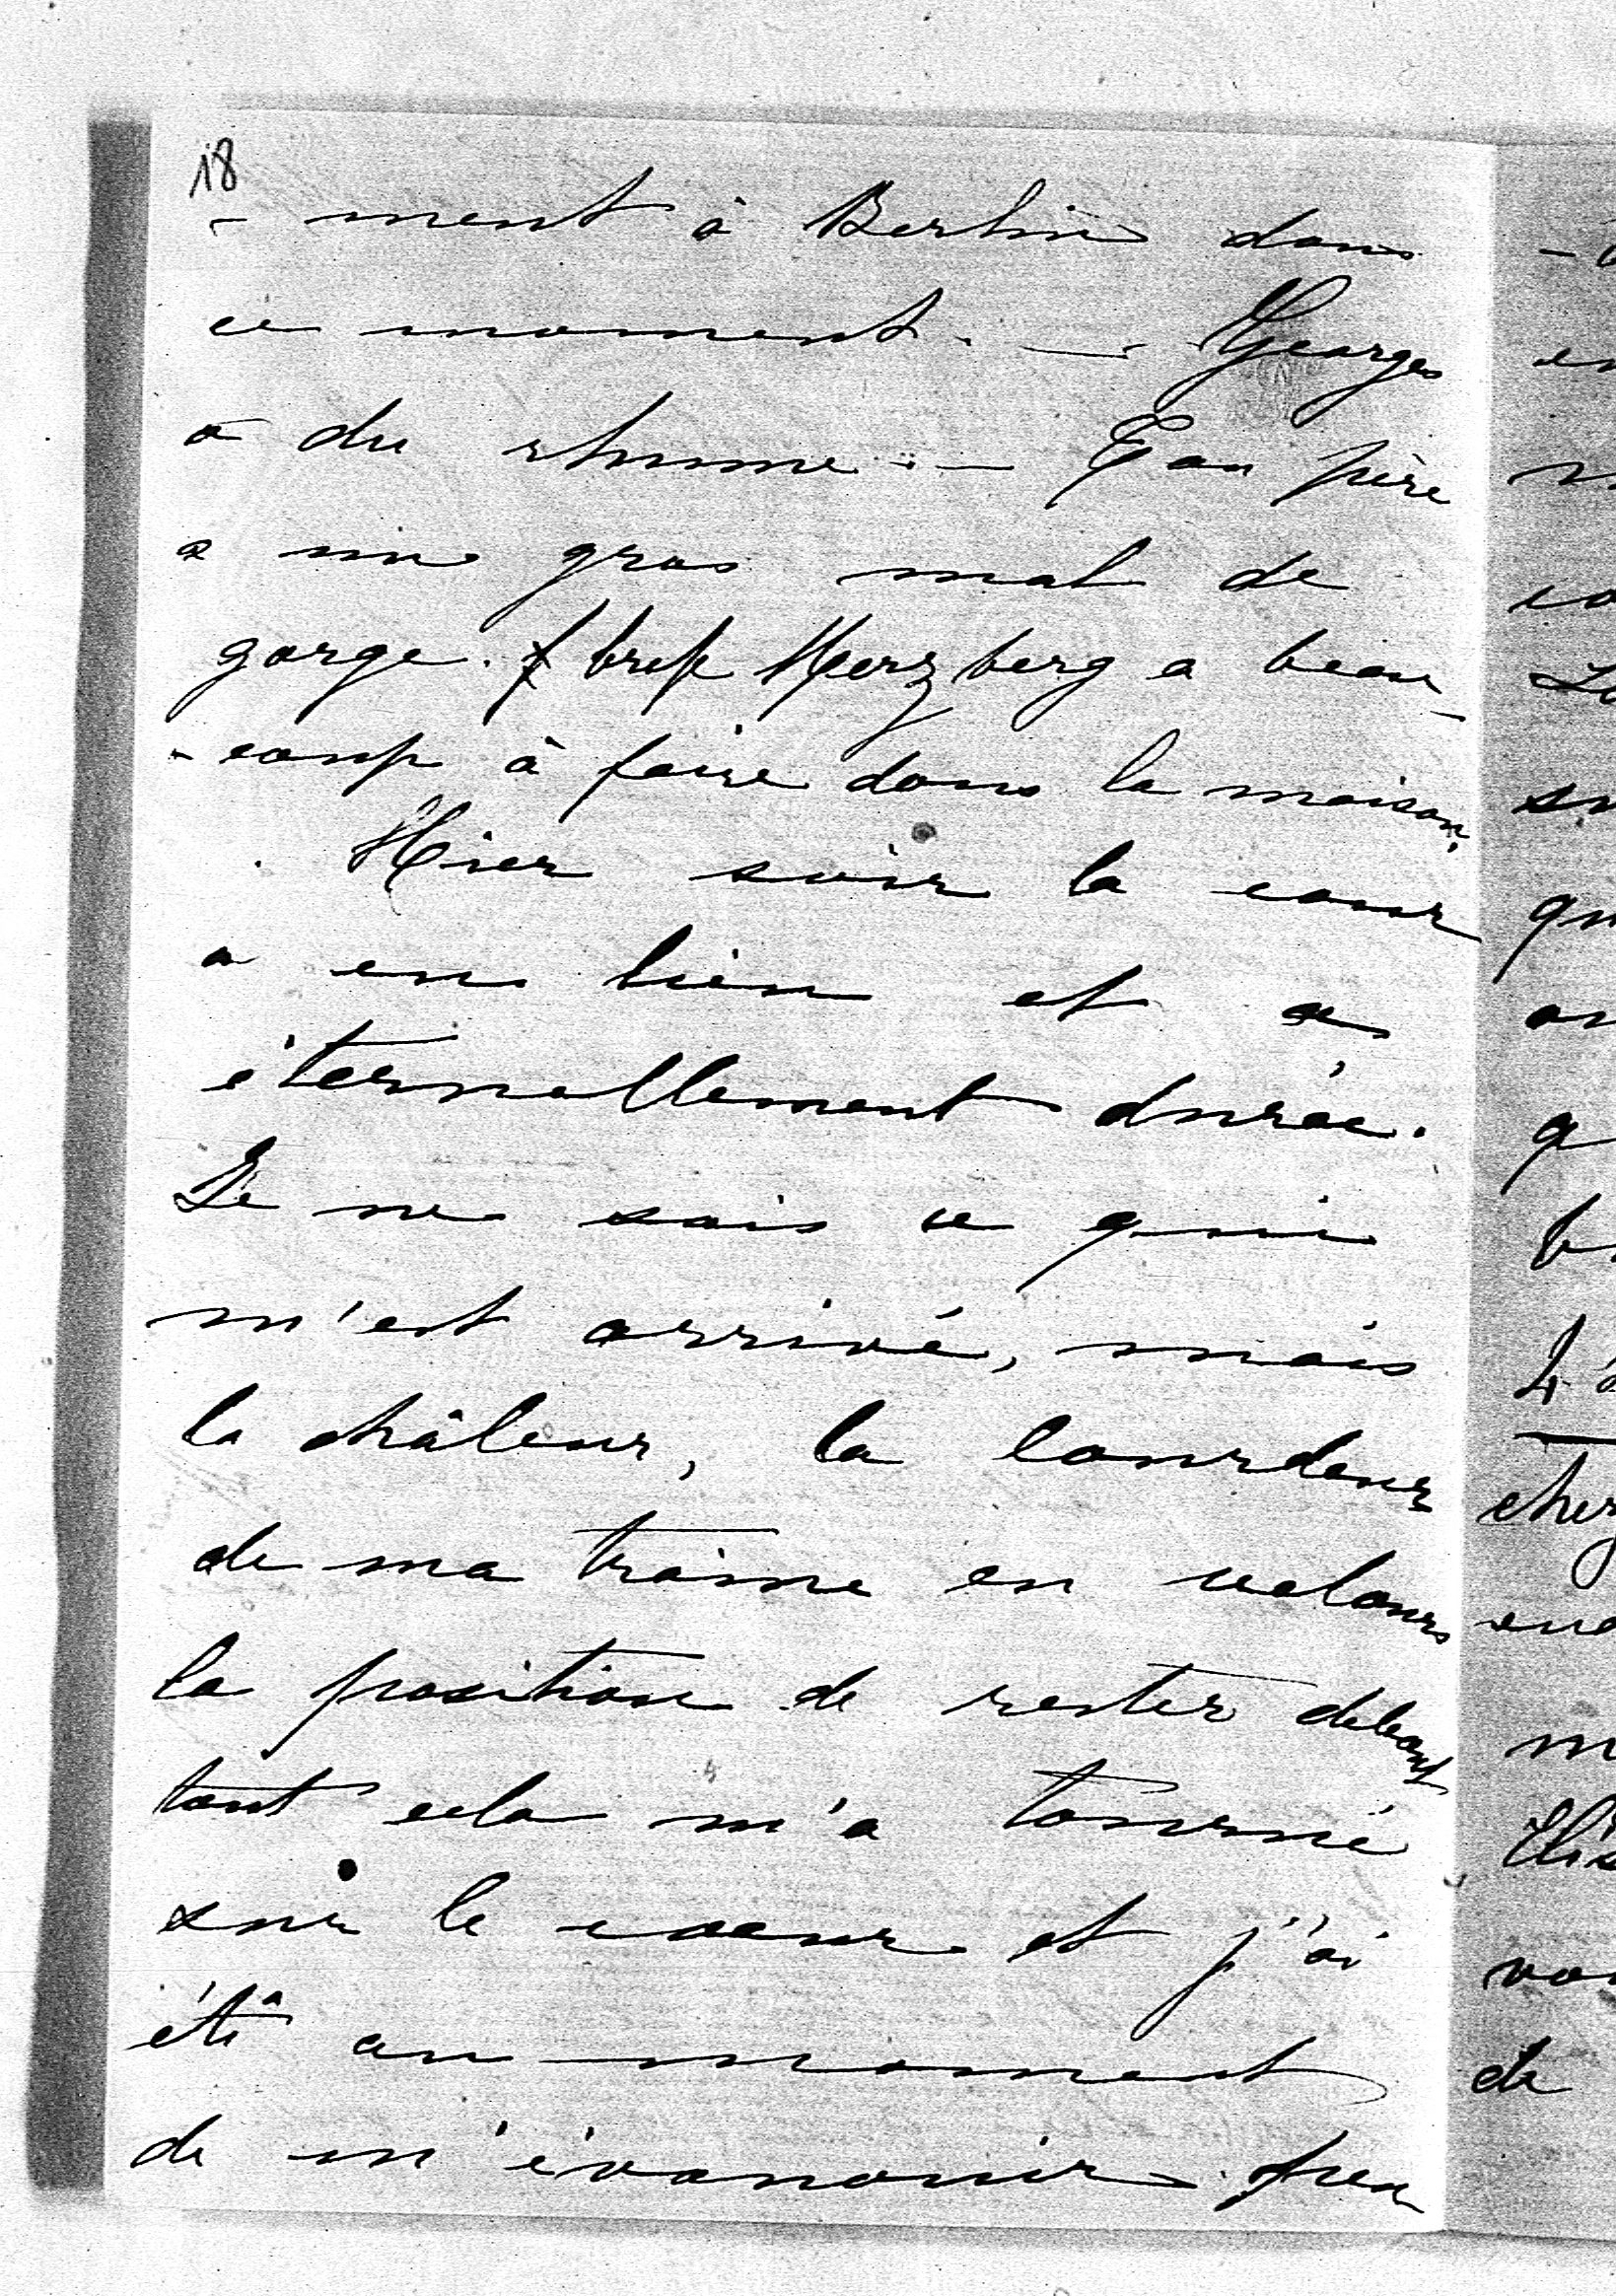 18
- ment à Berlin dans
ce moment. — Georges
a du rhume. — Ton père
a un gros mal de
gorge. bref Herzberg a beau-
- coup à faire dans la maison.
Hier soir la cour
a eu lieu et a
éternellement durée.
Je ne sais ce qui
m'est arrivé, mais
la châleur, la lourdeur
de ma traine en velours
la position de rester debout
tout cela m'a tourné
sur le coeur et j'ai
été au moment
de m'évanouir.
chez
de